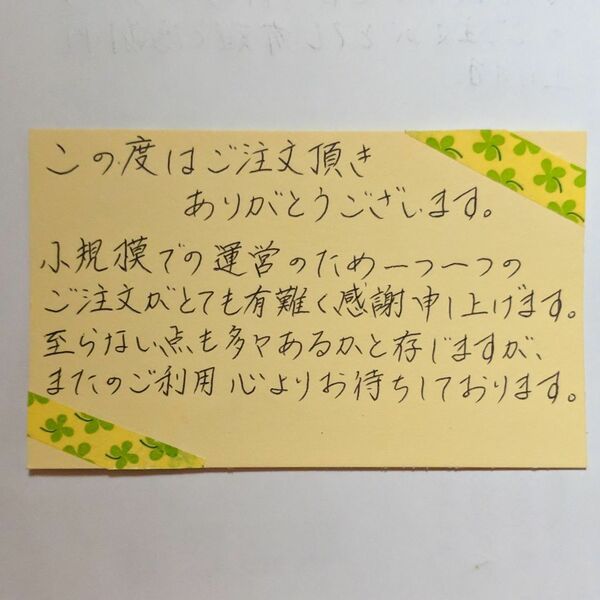 この度はご注文頂き
ありがとうございます。
小規模での運営のため一つ一つの
ご注文がとても有難く感謝申し上げます。
至らない点も多々あるかと存じますが、
またのご利用心よりお待ちしております。